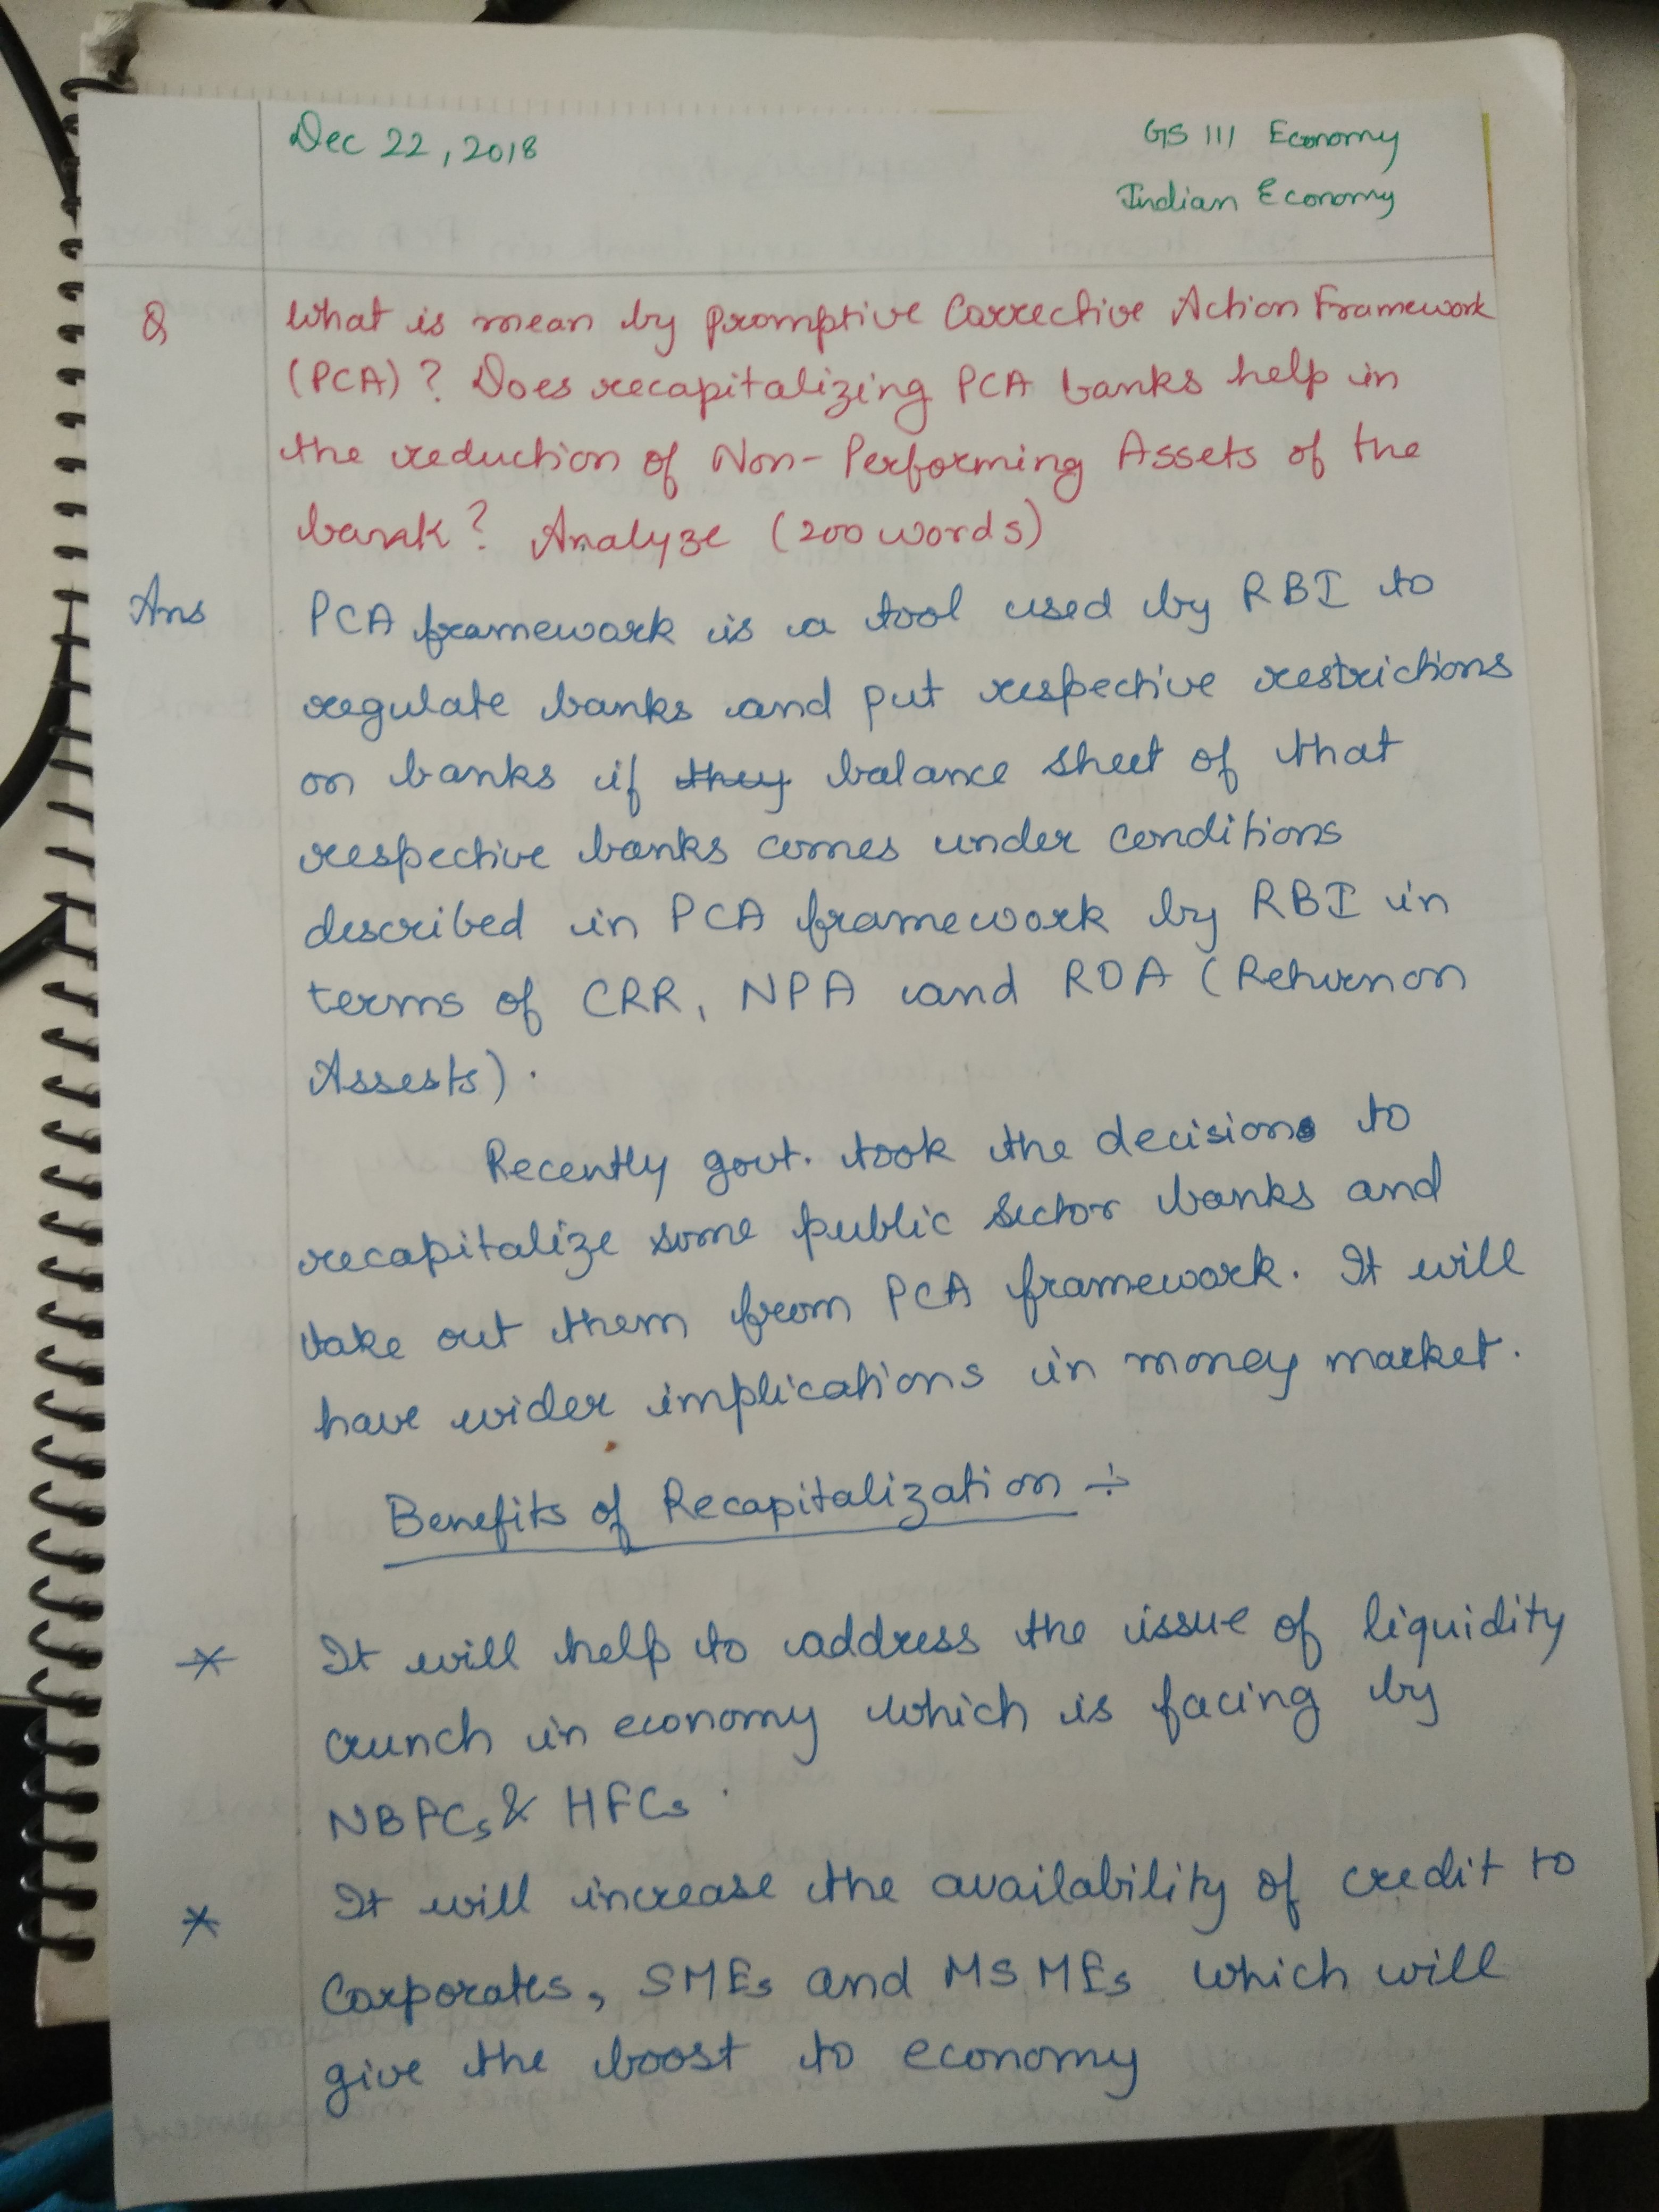 Dec 22, 2018
GS III Economy
Indian Economy
Q What is mean by promptive Corrective Action Framework
(PCA)? Does recapitalizing PCA banks help in
the reduction of Non-Performing Assets of the
bank? Analyze (200 words)
Ans PCA framework is a tool used by RBI to
regulate banks and put respective restrictions
on banks if they balance sheet of that
respective banks comes under conditions
described in PCA framework by RBI in
terms of CRR, NPA and ROA (Return on
Assests).
Recently govt. took the decision to
recapitalize some public sector banks and
take out them from PCA framework. It will
have wider implications in money market.
Benefits of Recapitalization ÷
* It will help to address the issue of liquidity
crunch in economy which is facing by
NBFCs & HFCs.
* It will increase the availability of credit to
Corporates, SMEs and MSMEs which will
give the boost to economy